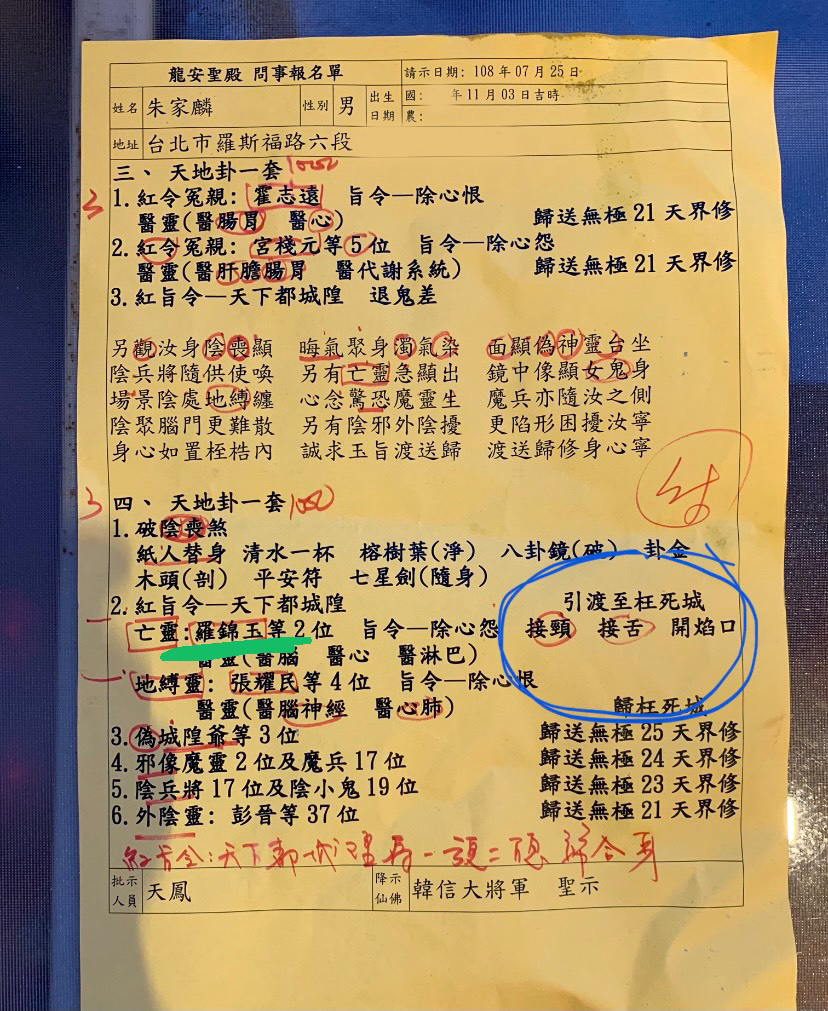 龍安聖殿 問事報名單
請示日期: 108 年 07 月 25 日
姓名 朱家麟 性別 男 出生日期 國: 年 11 月 03 日吉時
農:
地址 台北市羅斯福路六段
三、 天地卦一套
3 1. 紅令冤親: 霍志遠 旨令—除心恨
醫靈(醫腸胃 醫心) 歸送無極 21 天界修
2. 紅令冤親: 宮棧元等 5 位 旨令—除心怨
醫靈(醫肝膽腸胃 醫代謝系統) 歸送無極 21 天界修
3. 紅旨令—天下都城隍 退鬼差
另觀汝身陰喪顯 晦氣聚身濁氣染 面顯偽神靈台坐
陰兵將隨供使喚 另有亡靈急顯出 鏡中像顯女鬼身
場景陰處地縛纏 心念驚恐魔靈生 魔兵亦隨汝之側
陰聚腦門更難散 另有陰邪外陰擾 更陷形困擾汝寧
身心如置桎梏內 誠求玉旨渡送歸 渡送歸修身心寧
3 四、 天地卦一套
1. 破陰喪煞
紙人替身 清水一杯 榕樹葉(淨) 八卦鏡(破) 卦金
木頭(剖) 平安符 七星劍(隨身)
2. 紅旨令—天下都城隍 引渡至枉死城
亡靈: 羅錦玉等 2 位 旨令—除心怨 接頸 接舌 開焰口
醫靈(醫腦 醫心 醫淋巴)
地縛靈: 張耀民等 4 位 旨令—除心恨
醫靈(醫腦神經 醫心肺) 歸枉死城
3. 偽城隍爺等 3 位 歸送無極 25 天界修
4. 邪像魔靈 2 位及魔兵 17 位 歸送無極 24 天界修
5. 陰兵將 17 位及陰小鬼 19 位 歸送無極 23 天界修
6. 外陰靈: 彭晉等 37 位 歸送無極 21 天界修
批示人員 天鳳 降示仙佛 韓信大將軍 聖示